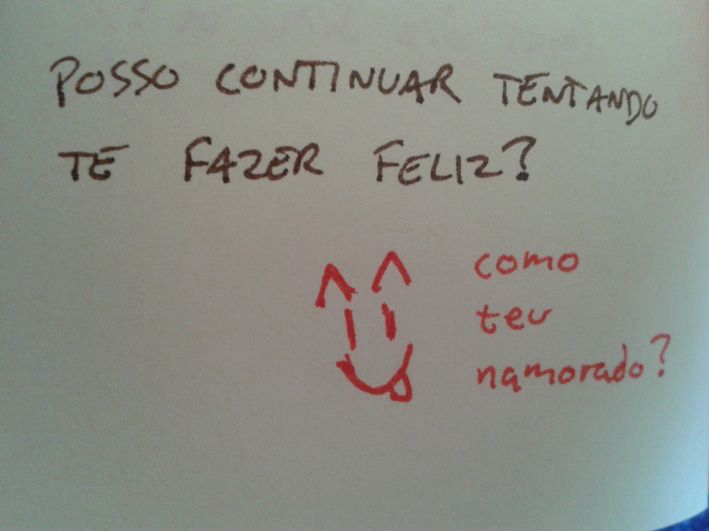 POSSO CONTINUAR TENTANDO
TE FAZER FELIZ?
como
teu
namorado?